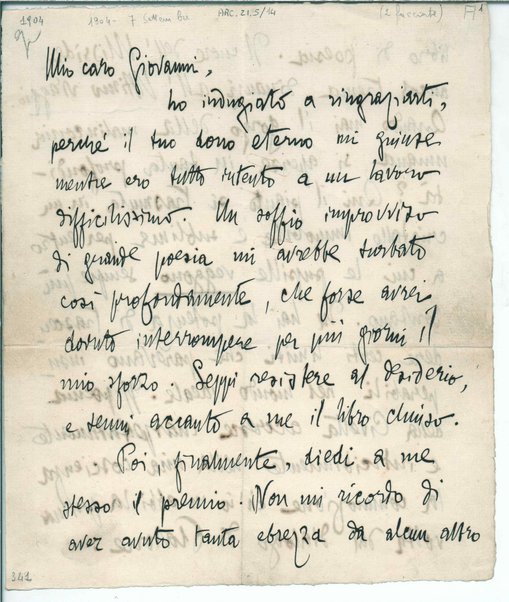 1904
1904 - 7 Settembre
ARC.21.5/14
(2 facciate)
Mio caro Giovanni,
ho indugiato a ringraziarti,
perché il tuo dono eterno mi giunse
mentre ero tutto intento a un lavoro
difficilissimo. Un soffio improvviso
di grande poesia mi avrebbe turbato
così profondamente, che forse avrei
dovuto interrompere per più giorni il
mio sforzo. Seppi resistere al desiderio,
e tenni accanto a me il libro chiuso.
Poi, finalmente, diedi a me
stesso il premio. Non mi ricordo di
aver avuto tanta ebrezza da alcun altro
341